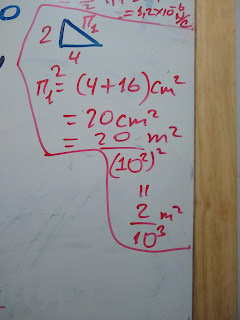 r₁
= 1,2×10⁻⁶ N/C
2
4
r₁² = (4+16)cm²
= 20cm²
= 20/(10²)² m²
=
2/10³ m²